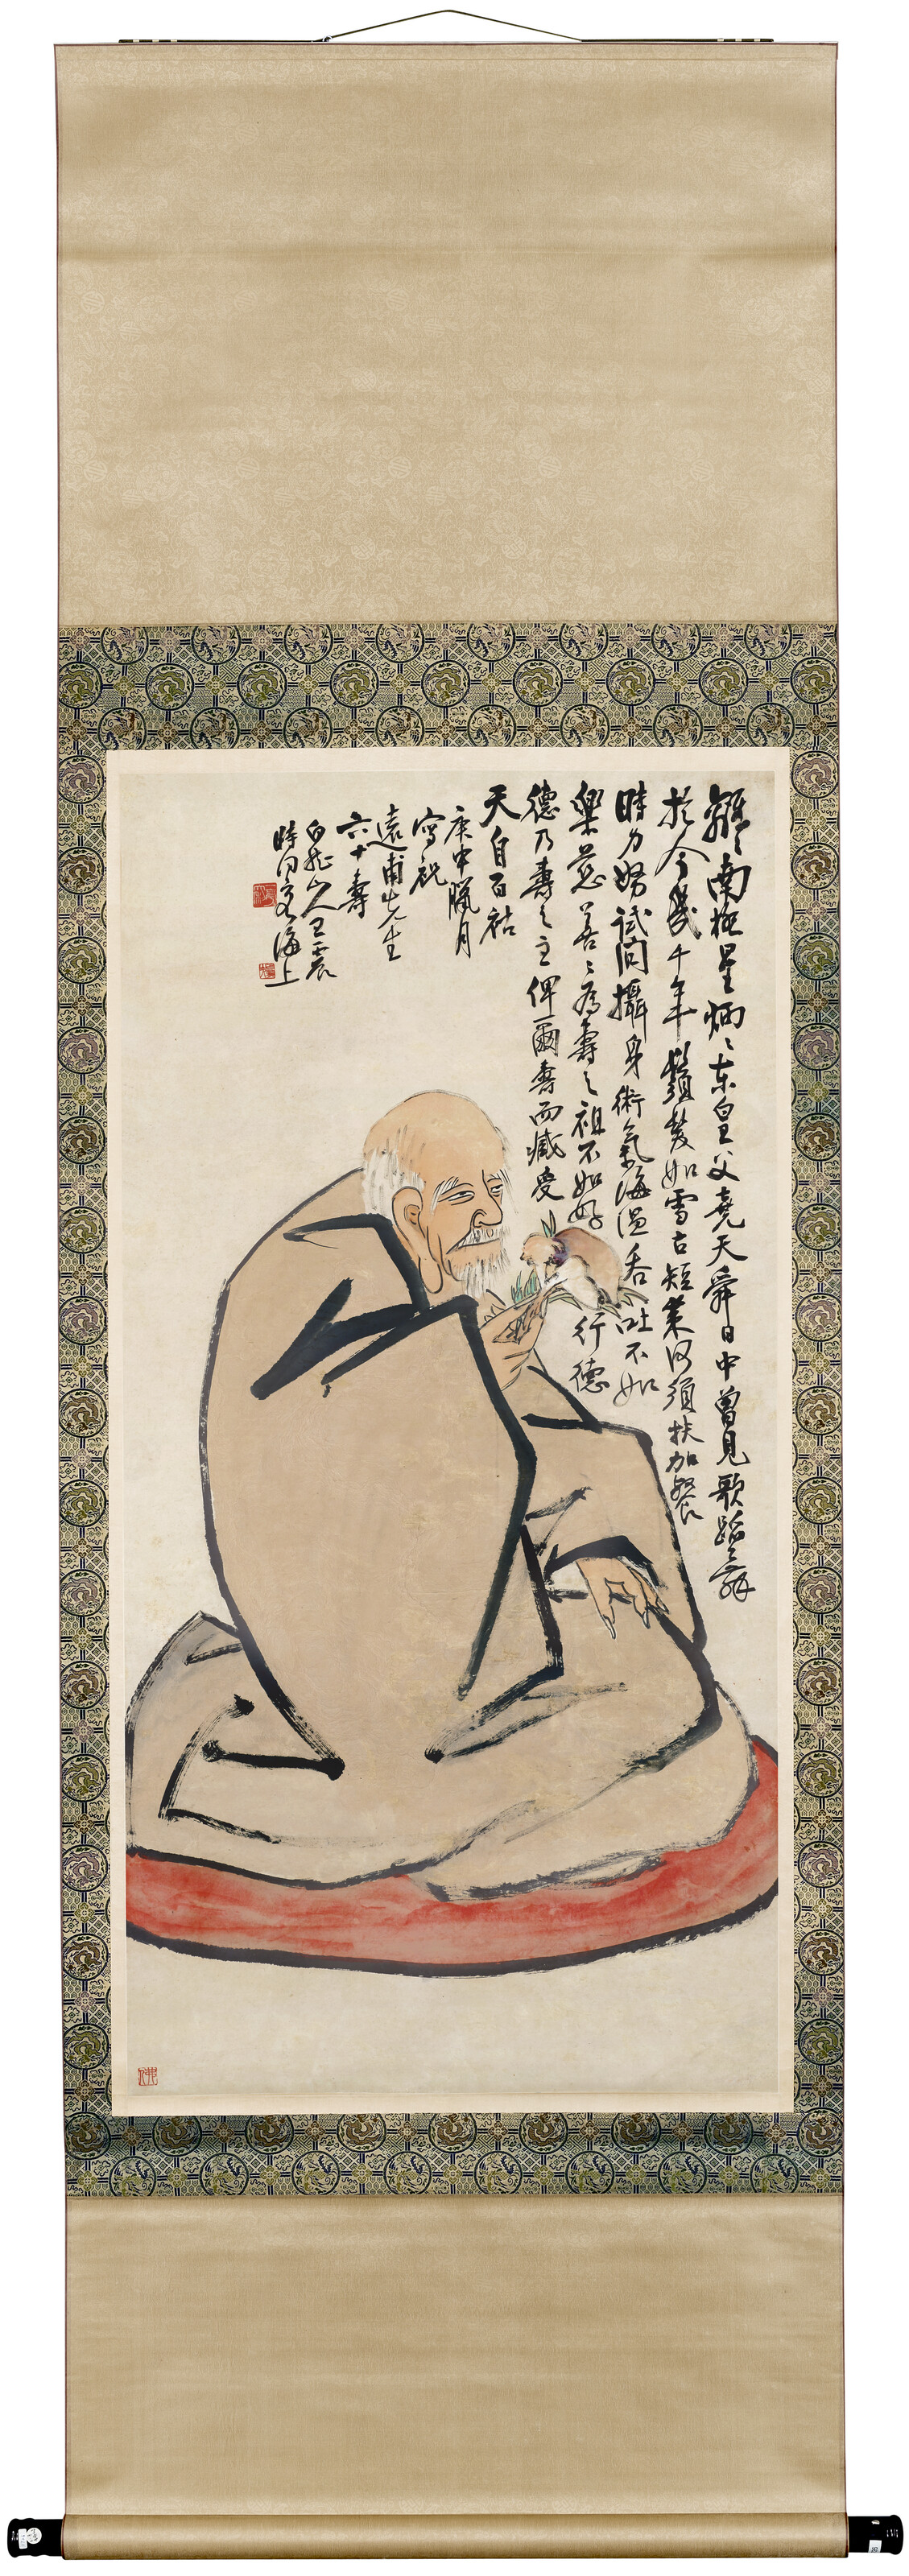 南極星炳炳東皇父堯天舜日中曾見歌蹈蹈舞
於今幾千年鬚髮如雪古短策何須扶加餐
時力努試問攝身術氣海溫吞吐不如
樂慈善善為壽之祖不如好行德
德乃壽之主俾爾壽而臧受
天自百祜
庚申臘月
寫祝
遠甫先生
六十壽
白龍山人王震
時同客海上